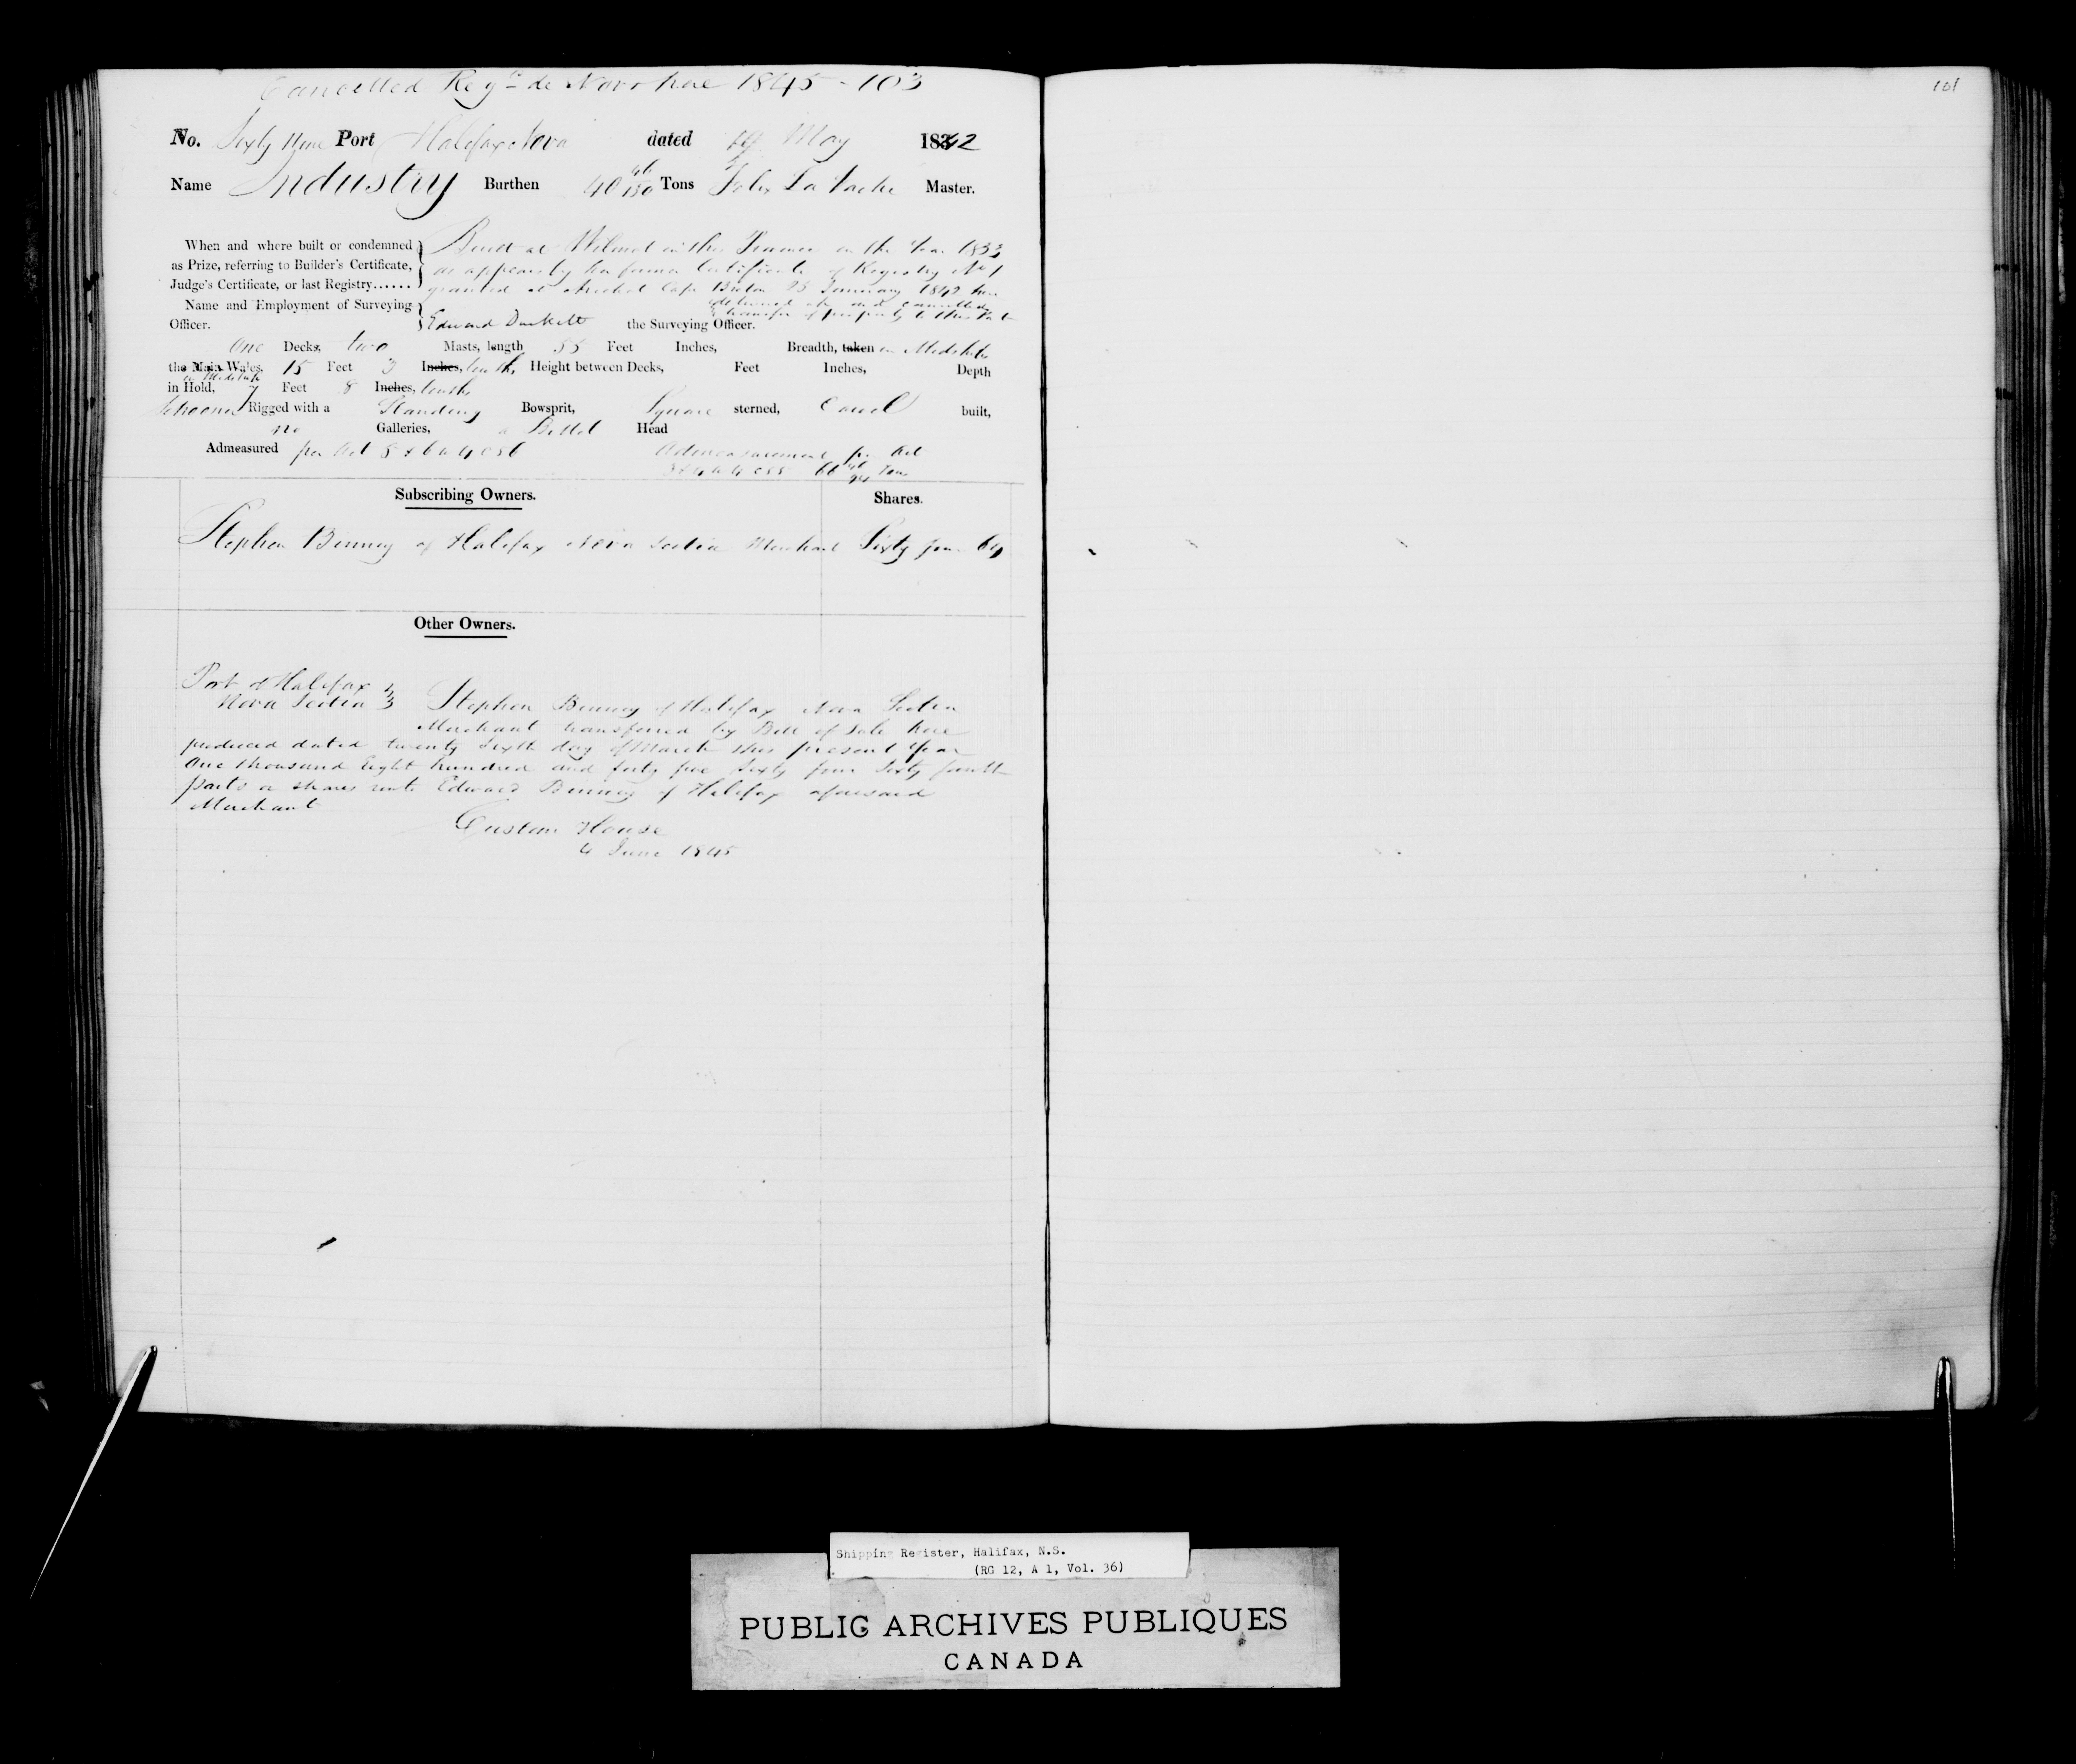 Cancelled Reg'd de Novo here 1845 - 103
101
No. Sixty Nine Port Halifax Nova dated 19 May 1842
Name Industry Burthen 40 Tons Felix La Vache Master.
When and where built or condemned
as Prize, referring to Builder's Certificate,
Judge's Certificate, or last Registry......
Built at in this Province in the Year 1833
as appears by her former Certificate of Registry No 1
granted at Arichat Cape Breton 25 January 1842 now
delivered up and cancelled
transfer of property to this Port
Name and Employment of Surveying
Officer.
Edward Duckett the Surveying Officer.
One Decks, two Masts, length 55 Feet Inches, Breadth, taken in Midships
the Main Wales, 15 Feet 3 Inches, tenths, Height between Decks, Feet Inches, Depth
in Midships
in Hold, 7 Feet 8 Inches, tenths
Schooner Rigged with a Standing Bowsprit, Square sterned, Carvel built,
no Galleries, a Billet Head
Admeasured per Act 5 & 6 W 4 C 56
Admeasurement per Act
3 & 4 W 4 C 55 66 Tons
Subscribing Owners. Shares.
Stephen Binney of Halifax Nova Scotia Merchant Sixty four 64
Other Owners.
Port of Halifax
Nova Scotia
Stephen Binney of Halifax Nova Scotia
Merchant transferred by Bill of Sale here
produced dated twenty sixth day of March this present Year
One thousand Eight hundred and forty five Sixty four Sixty fourth
parts or shares unto Edward Binney of Halifax aforesaid
Merchant
Custom House
4 June 1845
Shipping Register, Halifax, N.S.
(RG 12, A 1, Vol. 36)
PUBLIC ARCHIVES PUBLIQUES
CANADA